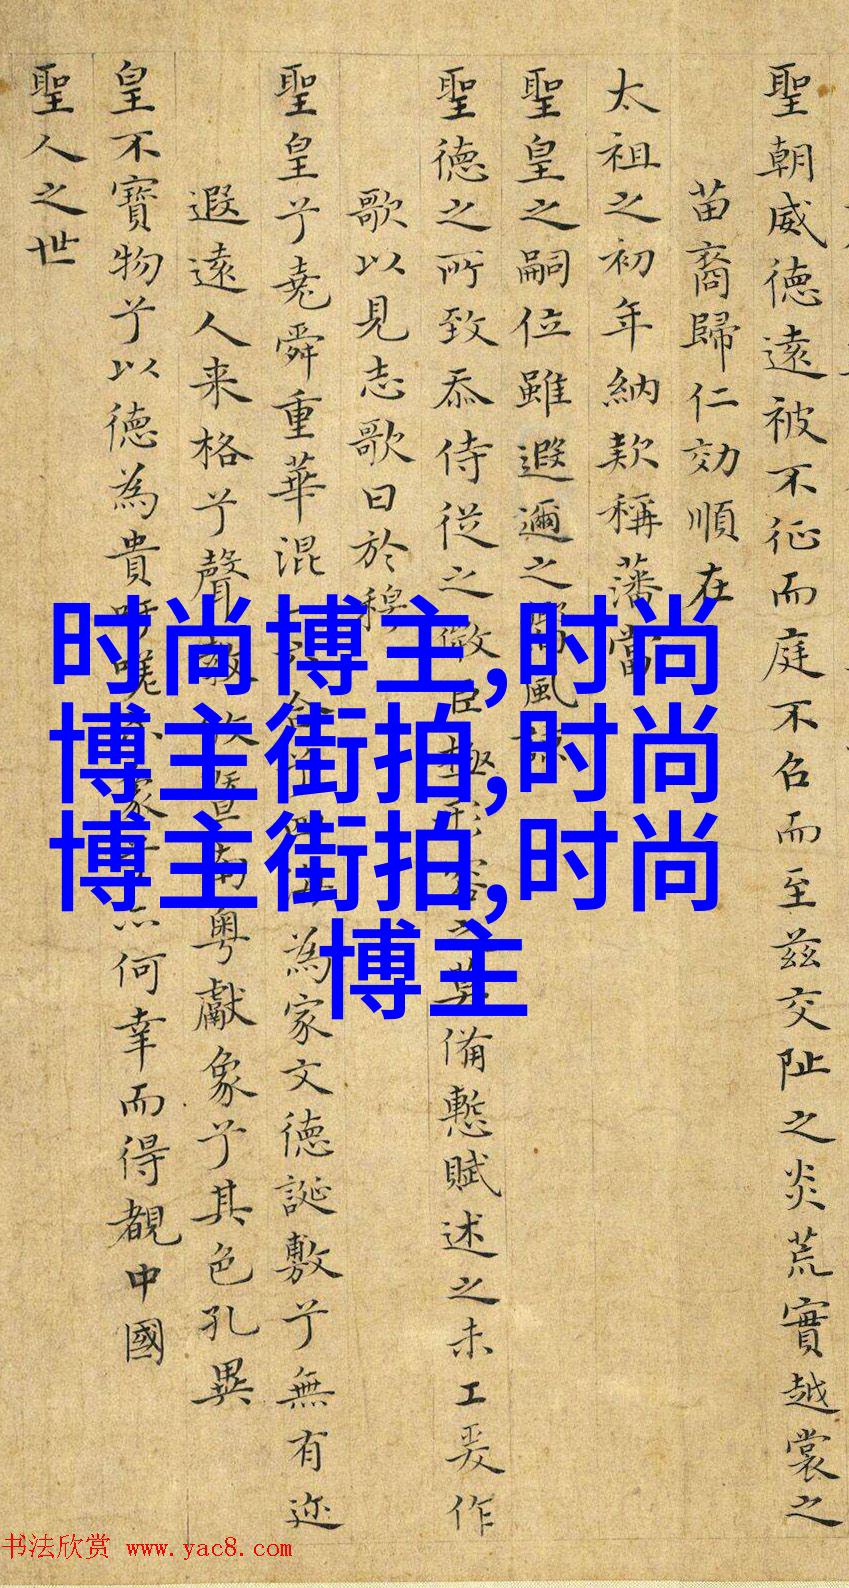 聖朝威德遠被不征而庭不召而至茲交阯之炎荒實越裳之
苗裔歸仁効順在
太祖之初年納款稱藩當
聖皇之嗣位雖遐邇之風
聖德之所致忝侍從之微臣極形容之莫備慙賦述之未工爰作
歌以見志歌曰於穆
聖皇兮堯舜重華混合四海為家文德誕敷兮無有迩
遐遠人来格兮聲教暨南粤獻象兮其色孔異
皇不寶物兮以德為貴吁嗟家何幸而得覩中國
聖人之世
时尚博主,时尚
博主街拍,时尚
博主街拍,时尚
博主
书法欣赏 www.yac8.com